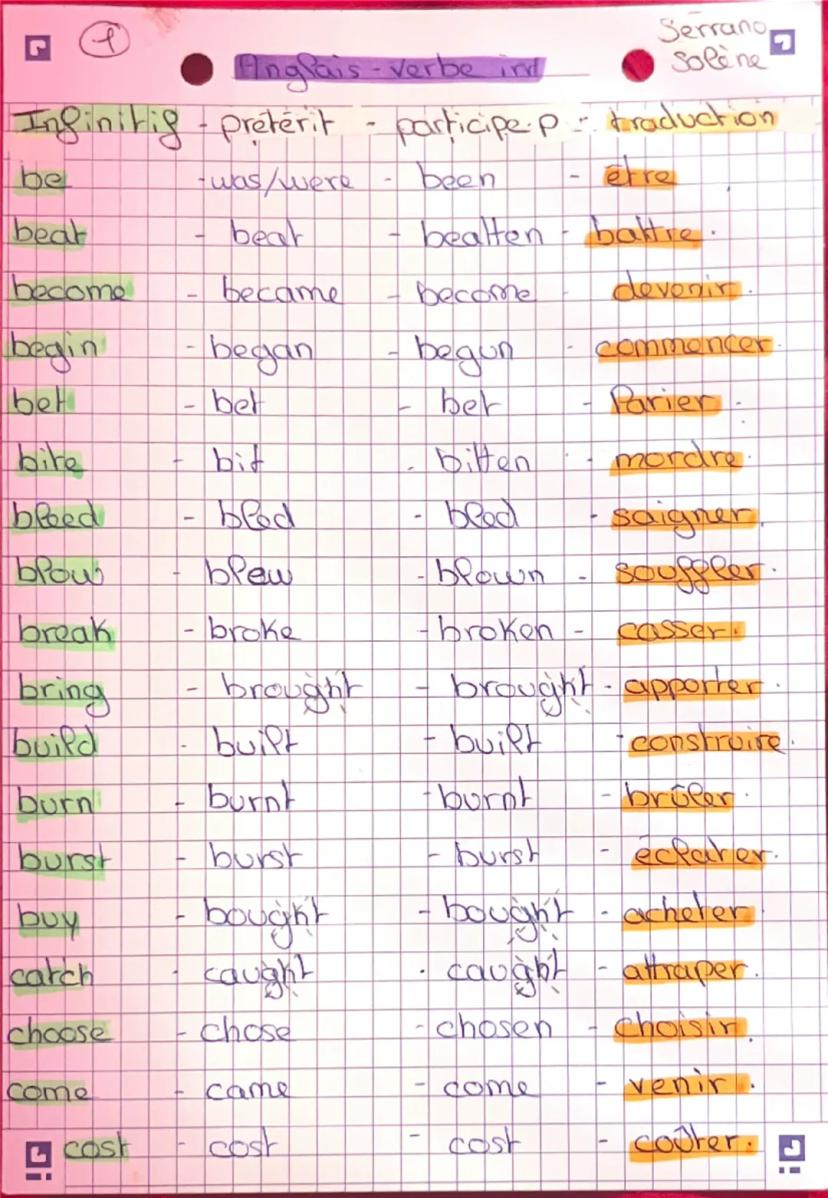 1
Serrano
Solène
Anglais - verbe irr
Infinitif - prétérit - participe.p - traduction
be - was/were - been - être
beat - beat - beatten - battre.
become - became - become - devenir.
begin - began - begun - commencer.
bet - bet - bet - Parier.
bite - bit - bitten - mordre.
bleed - bled - bled - saigner.
blow - blew - blown - souffler.
break - broke - broken - casser.
bring - brought - brought - apporter.
build - built - built - construire.
burn - burnt - burnt - brûler.
burst - burst - burst - éclater.
buy - bought - bought - acheter.
catch - caught - caught - attraper.
choose - chose - chosen - choisir.
come - came - come - venir.
cost - cost - cost - coûter.